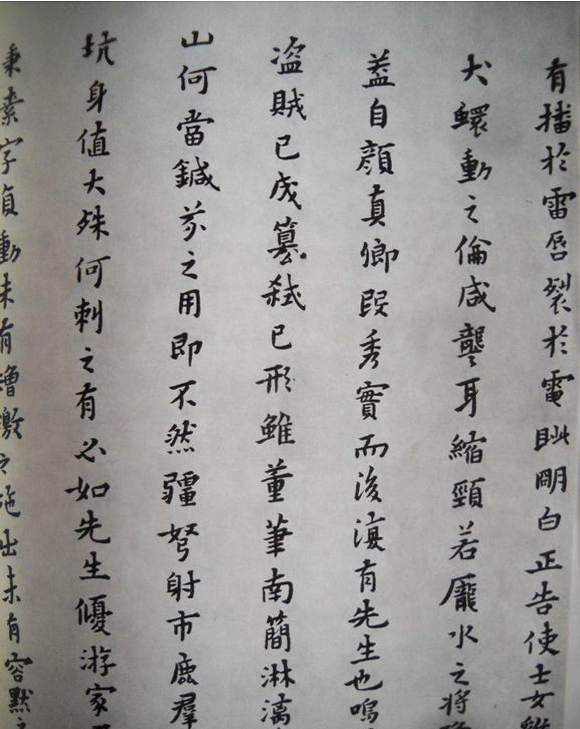 有播於雷唇裂於電眦明白正告使士女
犬蠉動之倫咸聾耳縮頸若龎水之將
葢自顔真卿段秀實而後復有先生也嗚
盗賊已成篡弑已形雖董筆南簡淋漓
山何當鍼芥之用即不然彊弩射市鹿羣
坑身值大殊何刺之有必如先生優游家
秉素字貞動未有增繳之施出未有容默之